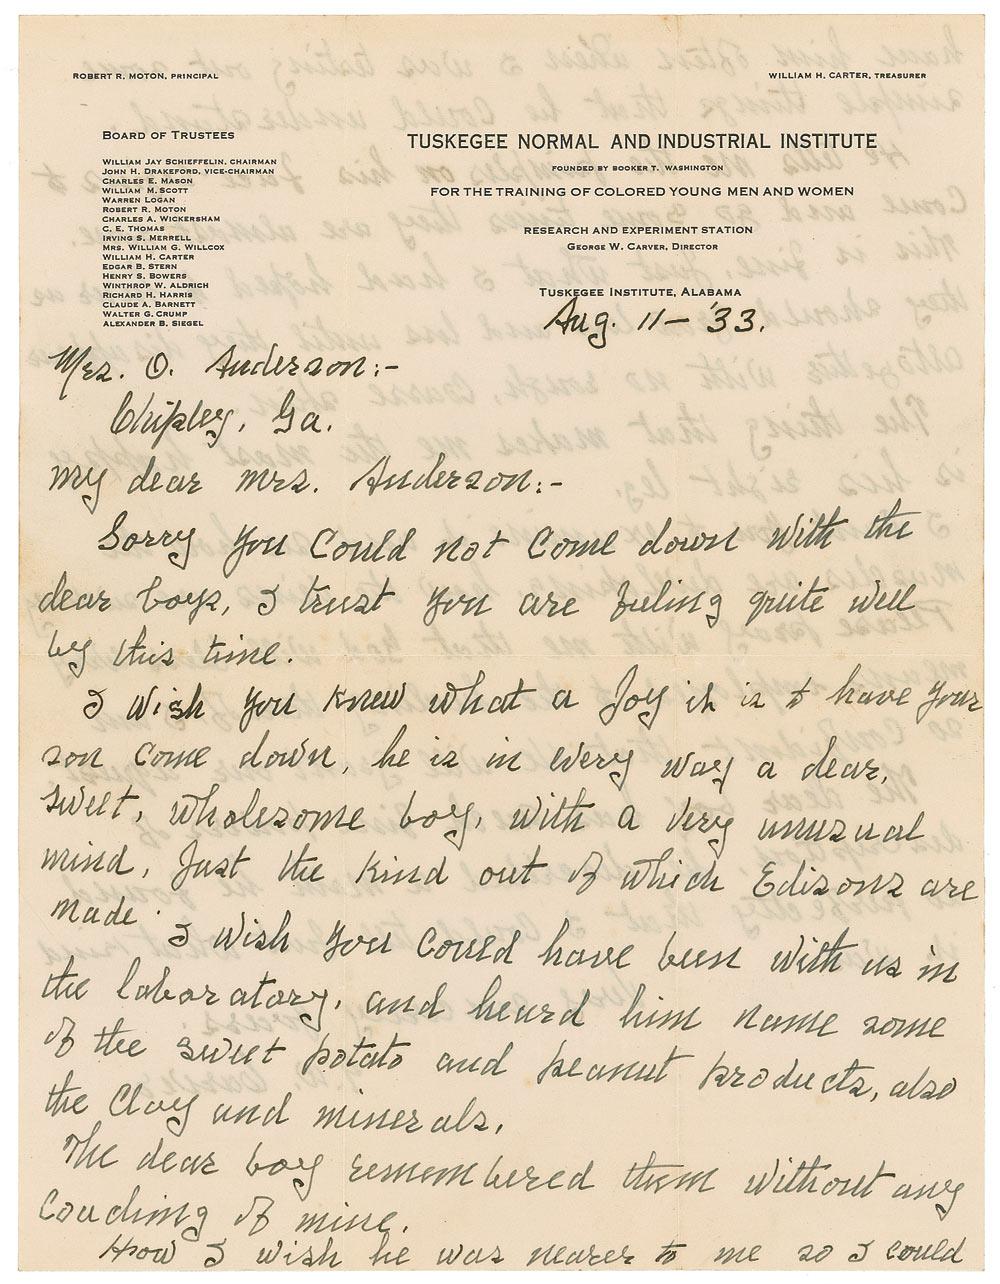 ROBERT R. MOTON, PRINCIPAL
WILLIAM H. CARTER, TREASURER
BOARD OF TRUSTEES
WILLIAM JAY SCHIEFFELIN, CHAIRMAN
JOHN H. DRAKEFORD, VICE-CHAIRMAN
CHARLES E. MASON
WILLIAM M. SCOTT
WARREN LOGAN
ROBERT R. MOTON
CHARLES A. WICKERSHAM
C. E. THOMAS
IRVING S. MERRELL
MRS. WILLIAM G. WILLCOX
WILLIAM H. CARTER
EDGAR B. STERN
HENRY S. BOWERS
WINTHROP W. ALDRICH
RICHARD H. HARRIS
CLAUDE A. BARNETT
WALTER G. CRUMP
ALEXANDER B. SIEGEL
TUSKEGEE NORMAL AND INDUSTRIAL INSTITUTE
FOUNDED BY BOOKER T. WASHINGTON
FOR THE TRAINING OF COLORED YOUNG MEN AND WOMEN
RESEARCH AND EXPERIMENT STATION
GEORGE W. CARVER, DIRECTOR
TUSKEGEE INSTITUTE, ALABAMA
Aug. 11 – '33.
Mrs. O. Anderson:-
Chipley, Ga.
My dear Mrs. Anderson:-
Sorry you could not come down with the
dear boys, I trust you are feeling quite well
by this time.
I wish you knew what a joy it is to have your
son come down, he is in every way a dear,
sweet, wholesome boy, with a very unusual
mind, Just the kind out of which Edisons are
made.
I wish you could have been with us in
the laboratory, and heard him name some
of the sweet potato and peanut products, also
the Clay and minerals,
The dear boy remembered them without any
couching of mine.
How I wish he was nearer to me so I could